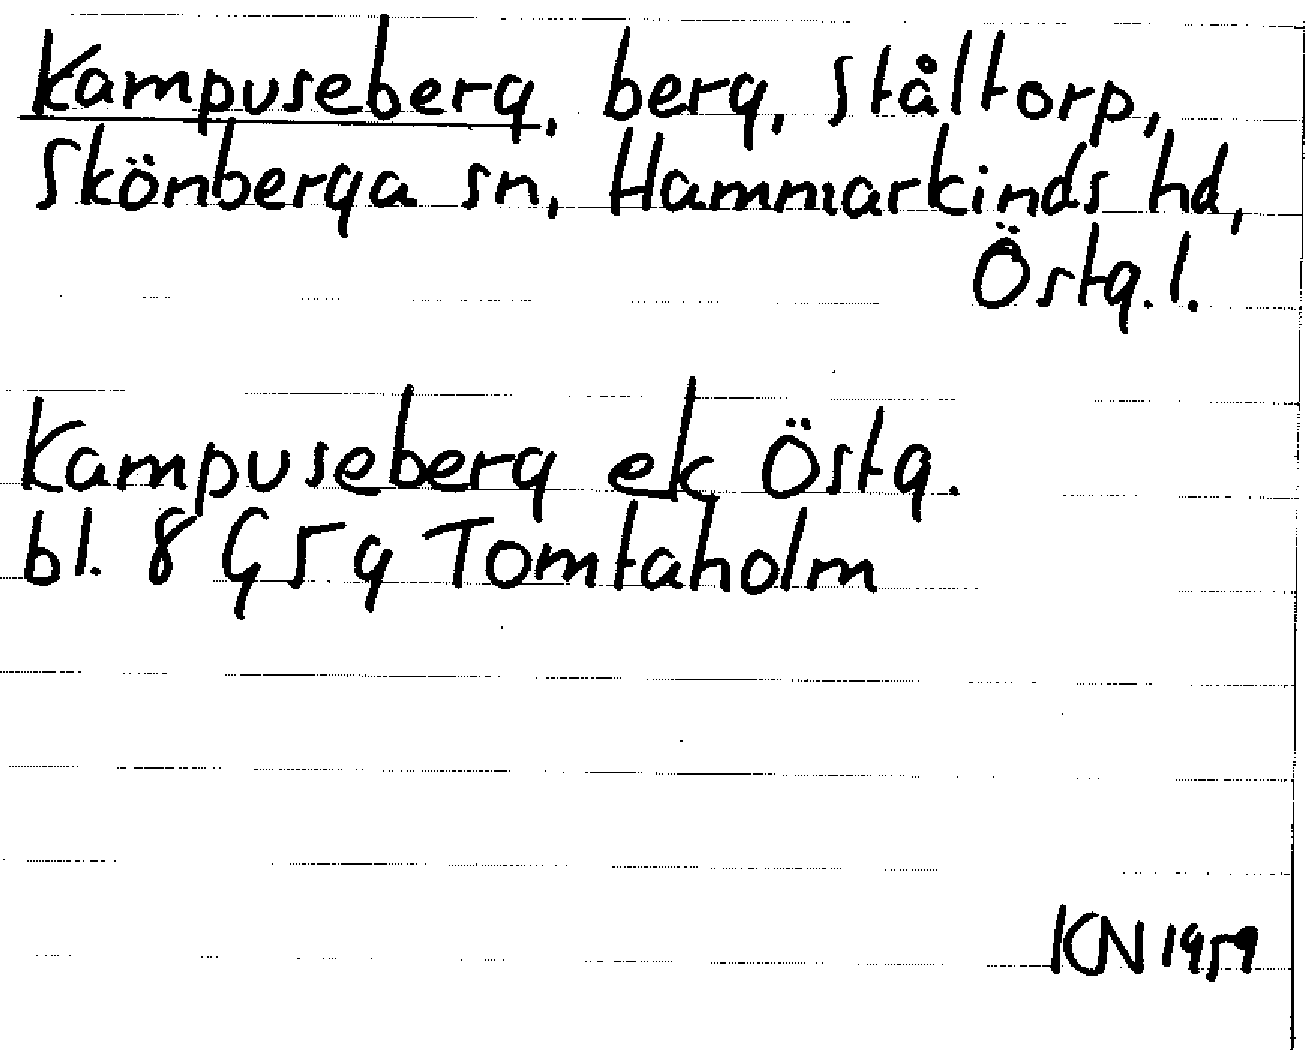 Kampuseberg, berg, Ståltorp,
Skönberga sn, Hammarkinds hd,
Östg. l.
Kampuseberg ek Östg.
bl. 8 G 5 g Tomtaholm
KN 1959